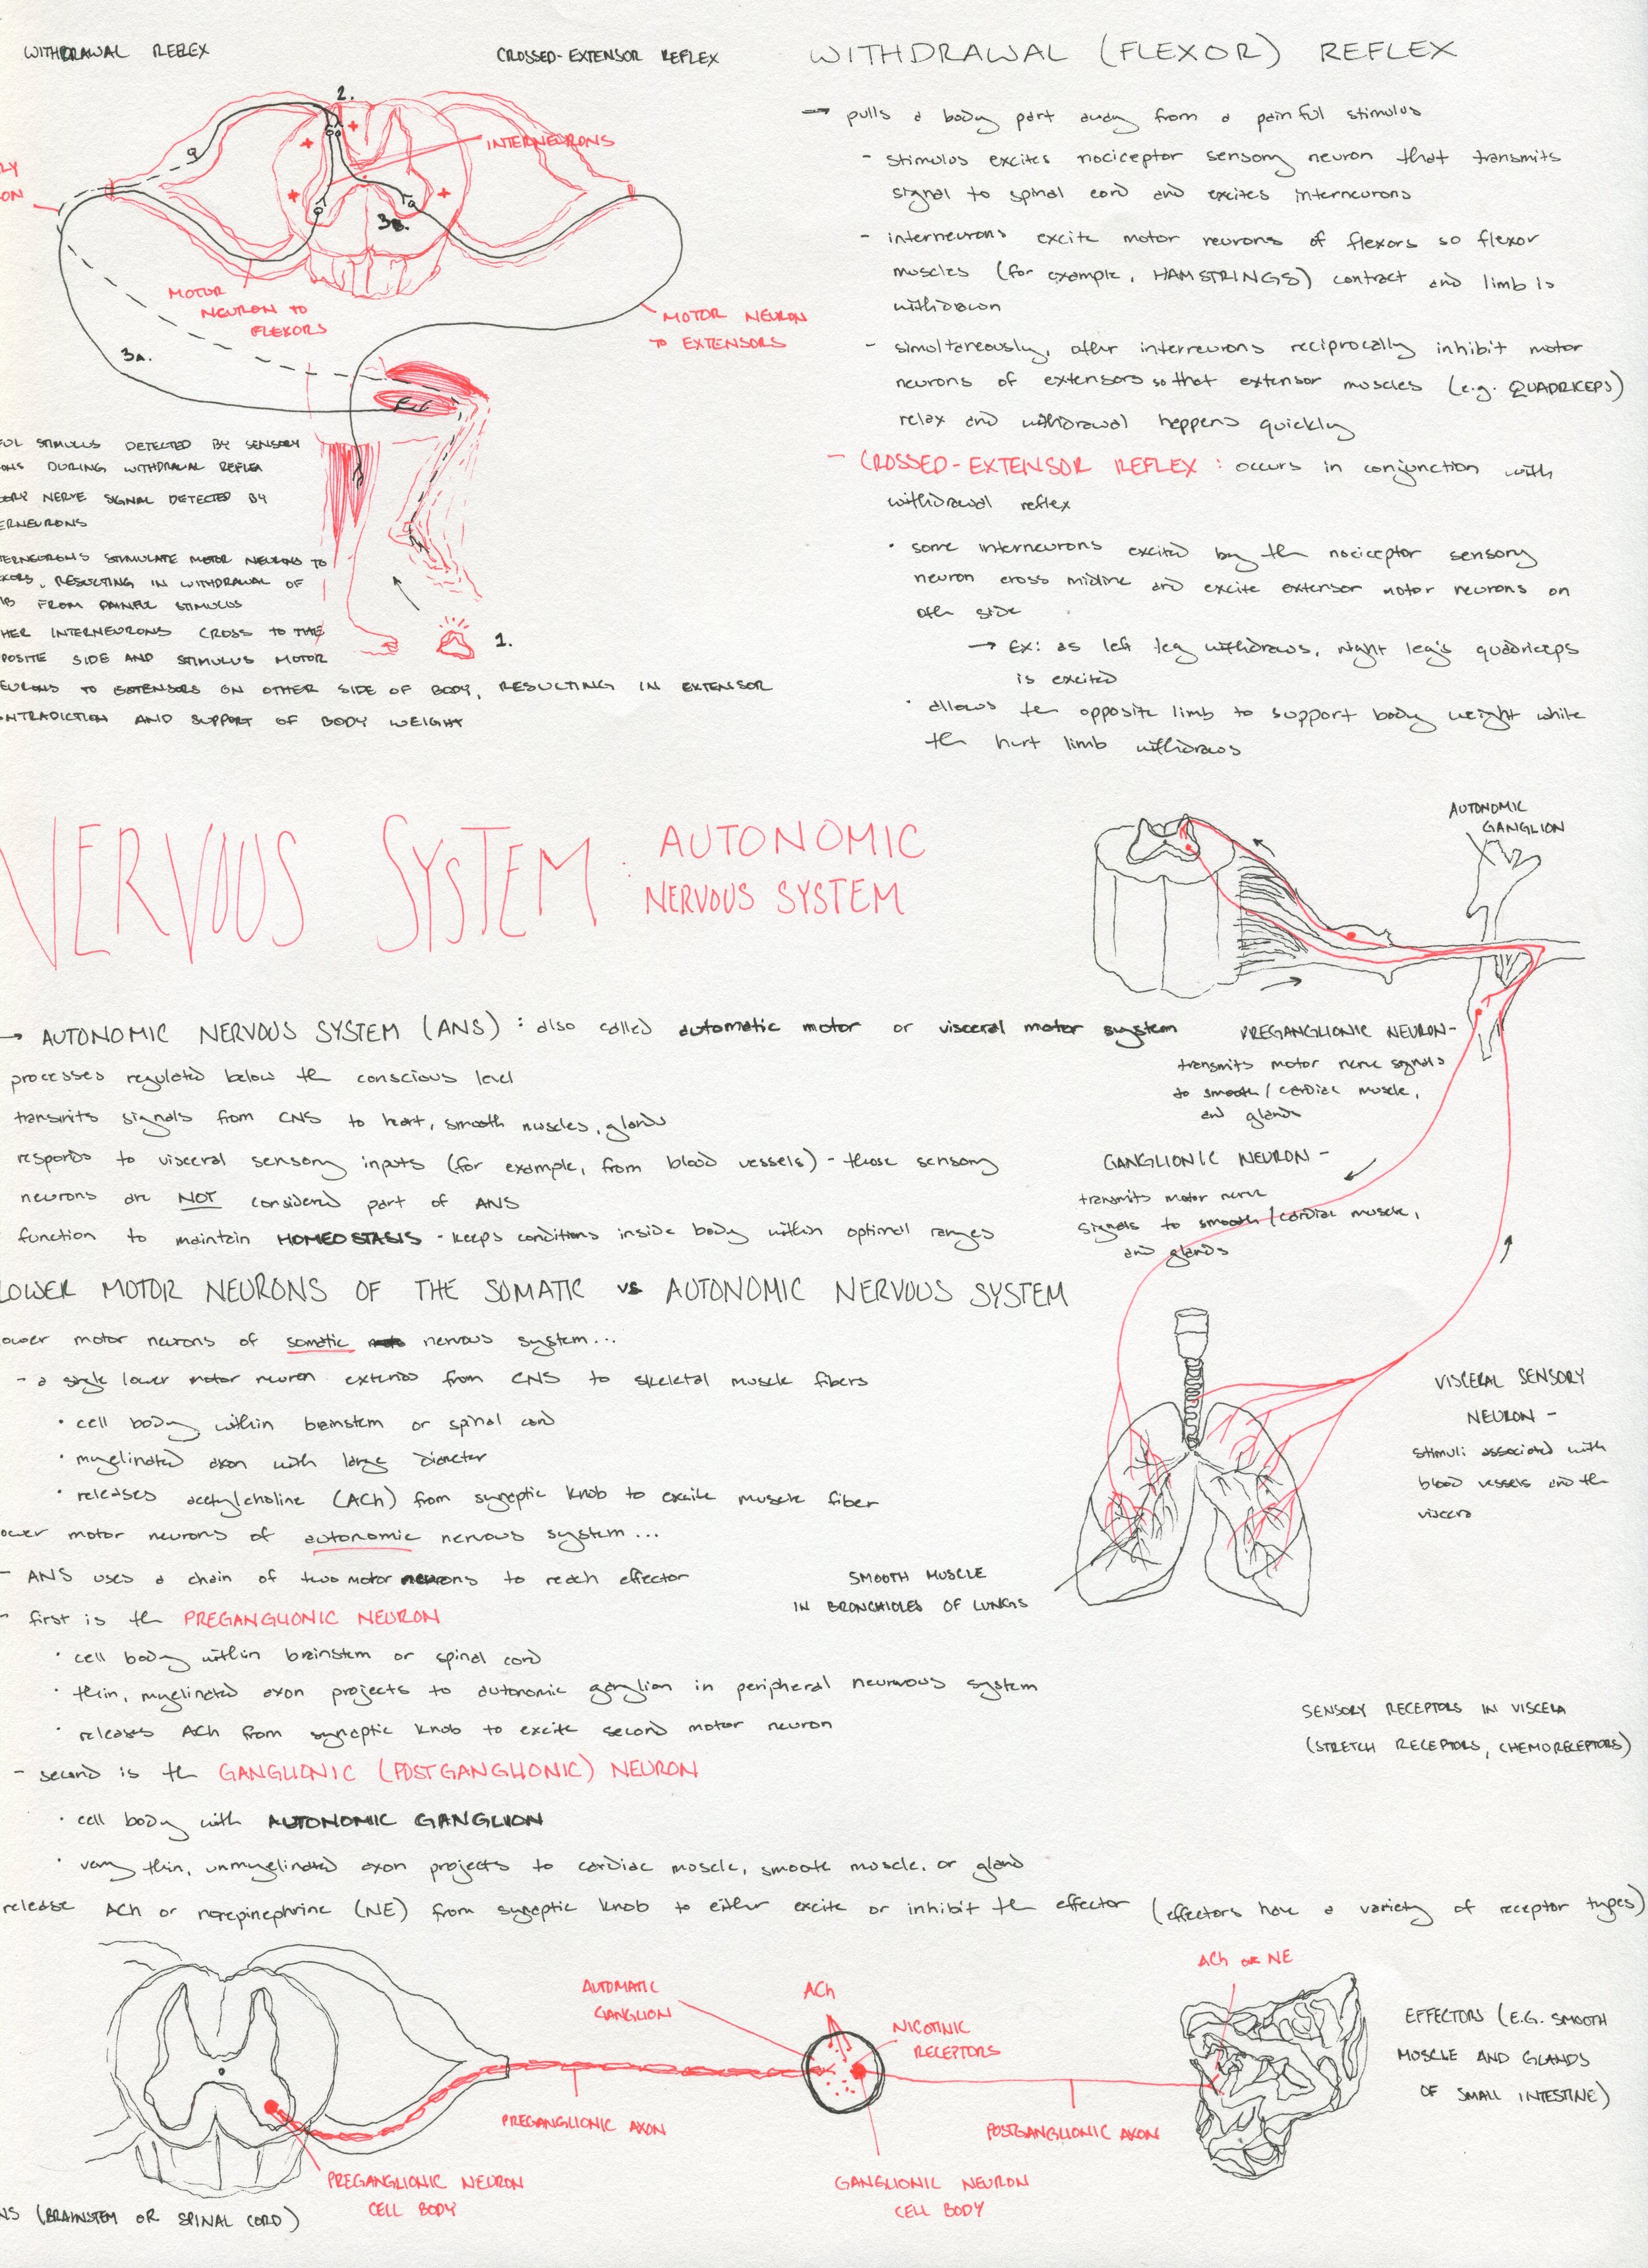 WITHDRAWAL REFLEX
CROSSED-EXTENSOR REFLEX
2.
INTERNEURONS
LY
ON
3B.
MOTOR
NEURON TO
FLEXORS
MOTOR NEURON
TO EXTENSORS
3A.
FUL STIMULUS DETECTED BY SENSORY
ONS DURING WITHDRAWAL REFLEX
SORY NERVE SIGNAL DETECTED BY
ERNEURONS
TERNEURONS STIMULATE MOTOR NEURONS TO
XORS, RESULTING IN WITHDRAWAL OF
MB FROM PAINFUL STIMULUS
HER INTERNEURONS CROSS TO THE
POSITE SIDE AND STIMULUS MOTOR
EURONS TO EXTENSORS ON OTHER SIDE OF BODY, RESULTING IN EXTENSOR
ONTRADICTION AND SUPPORT OF BODY WEIGHT
1.
WITHDRAWAL (FLEXOR) REFLEX
→ pulls a body part away from a painful stimulus
- stimulus excites nociceptor sensory neuron that transmits
signal to spinal cord and excites interneurons
- interneurons excite motor neurons of flexors so flexor
muscles (for example, HAMSTRINGS) contract and limb is
withdrawn
- simultaneously, other interneurons reciprocally inhibit motor
neurons of extensors so that extensor muscles (e.g. QUADRICEPS)
relax and withdrawal happens quickly
- CROSSED-EXTENSOR REFLEX: occurs in conjunction with
withdrawal reflex
• some interneurons excited by the nociceptor sensory
neuron cross midline and excite extensor motor neurons on
oth side
→ Ex: as left leg withdraws, right leg's quadriceps
is excited
• allows the opposite limb to support body weight while
the hurt limb withdraws
NERVOUS SYSTEM: AUTONOMIC
NERVOUS SYSTEM
→ AUTONOMIC NERVOUS SYSTEM (ANS): also called automatic motor or visceral motor system
processes regulated below the conscious level
transmits signals from CNS to heart, smooth muscles, glands
responds to visceral sensory inputs (for example, from blood vessels) - those sensory
neurons are NOT considered part of ANS
function to maintain HOMEOSTASIS - keeps conditions inside body within optimal ranges
LOWER MOTOR NEURONS OF THE SOMATIC vs AUTONOMIC NERVOUS SYSTEM
ower motor neurons of somatic nervous system...
- a single lower motor neuron extends from CNS to skeletal muscle fibers
• cell body within brainstem or spinal cord
• myelinated axon with large diameter
• releases acetylcholine (ACh) from synaptic knob to excite muscle fiber
ower motor neurons of autonomic nervous system...
- ANS uses a chain of two motor neurons to reach effector
- first is the PREGANGLIONIC NEURON
• cell body within brainstem or spinal cord
• thin, myelinated axon projects to autonomic ganglion in peripheral neurvous system
• releases ACh from synaptic knob to excite second motor neuron
- second is the GANGLIONIC (POSTGANGLIONIC) NEURON
• cell body with AUTONOMIC GANGLION
• very thin, unmyelinated axon projects to cardiac muscle, smooth muscle, or gland
release ACh or norepinephrine (NE) from synaptic knob to either excite or inhibit the effector (effectors have a variety of receptor types)
AUTONOMIC
GANGLION
PREGANGLIONIC NEURON-
transmits motor nerve signals
to smooth/cardiac muscle,
and glands
GANGLIONIC NEURON -
transmits motor nerve
signals to smooth/cardiac muscle,
and glands
VISCERAL SENSORY
NEURON -
stimuli associated with
blood vessels and the
viscera
SMOOTH MUSCLE
IN BRONCHIOLES OF LUNGS
SENSORY RECEPTORS IN VISCERA
(STRETCH RECEPTORS, CHEMORECEPTORS)
AUTOMATIC
GANGLION
ACh
NICOTINIC
RECEPTORS
ACh or NE
EFFECTORS (E.G. SMOOTH
MUSCLE AND GLANDS
OF SMALL INTESTINE)
PREGANGLIONIC AXON
POSTGANGLIONIC AXON
PREGANGLIONIC NEURON
CELL BODY
GANGLIONIC NEURON
CELL BODY
NS (BRAINSTEM OR SPINAL CORD)